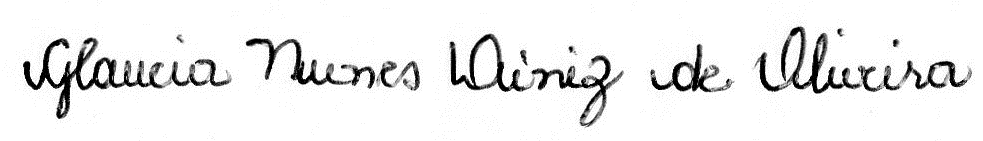 Glaucia Nunes Diniz de Oliveira